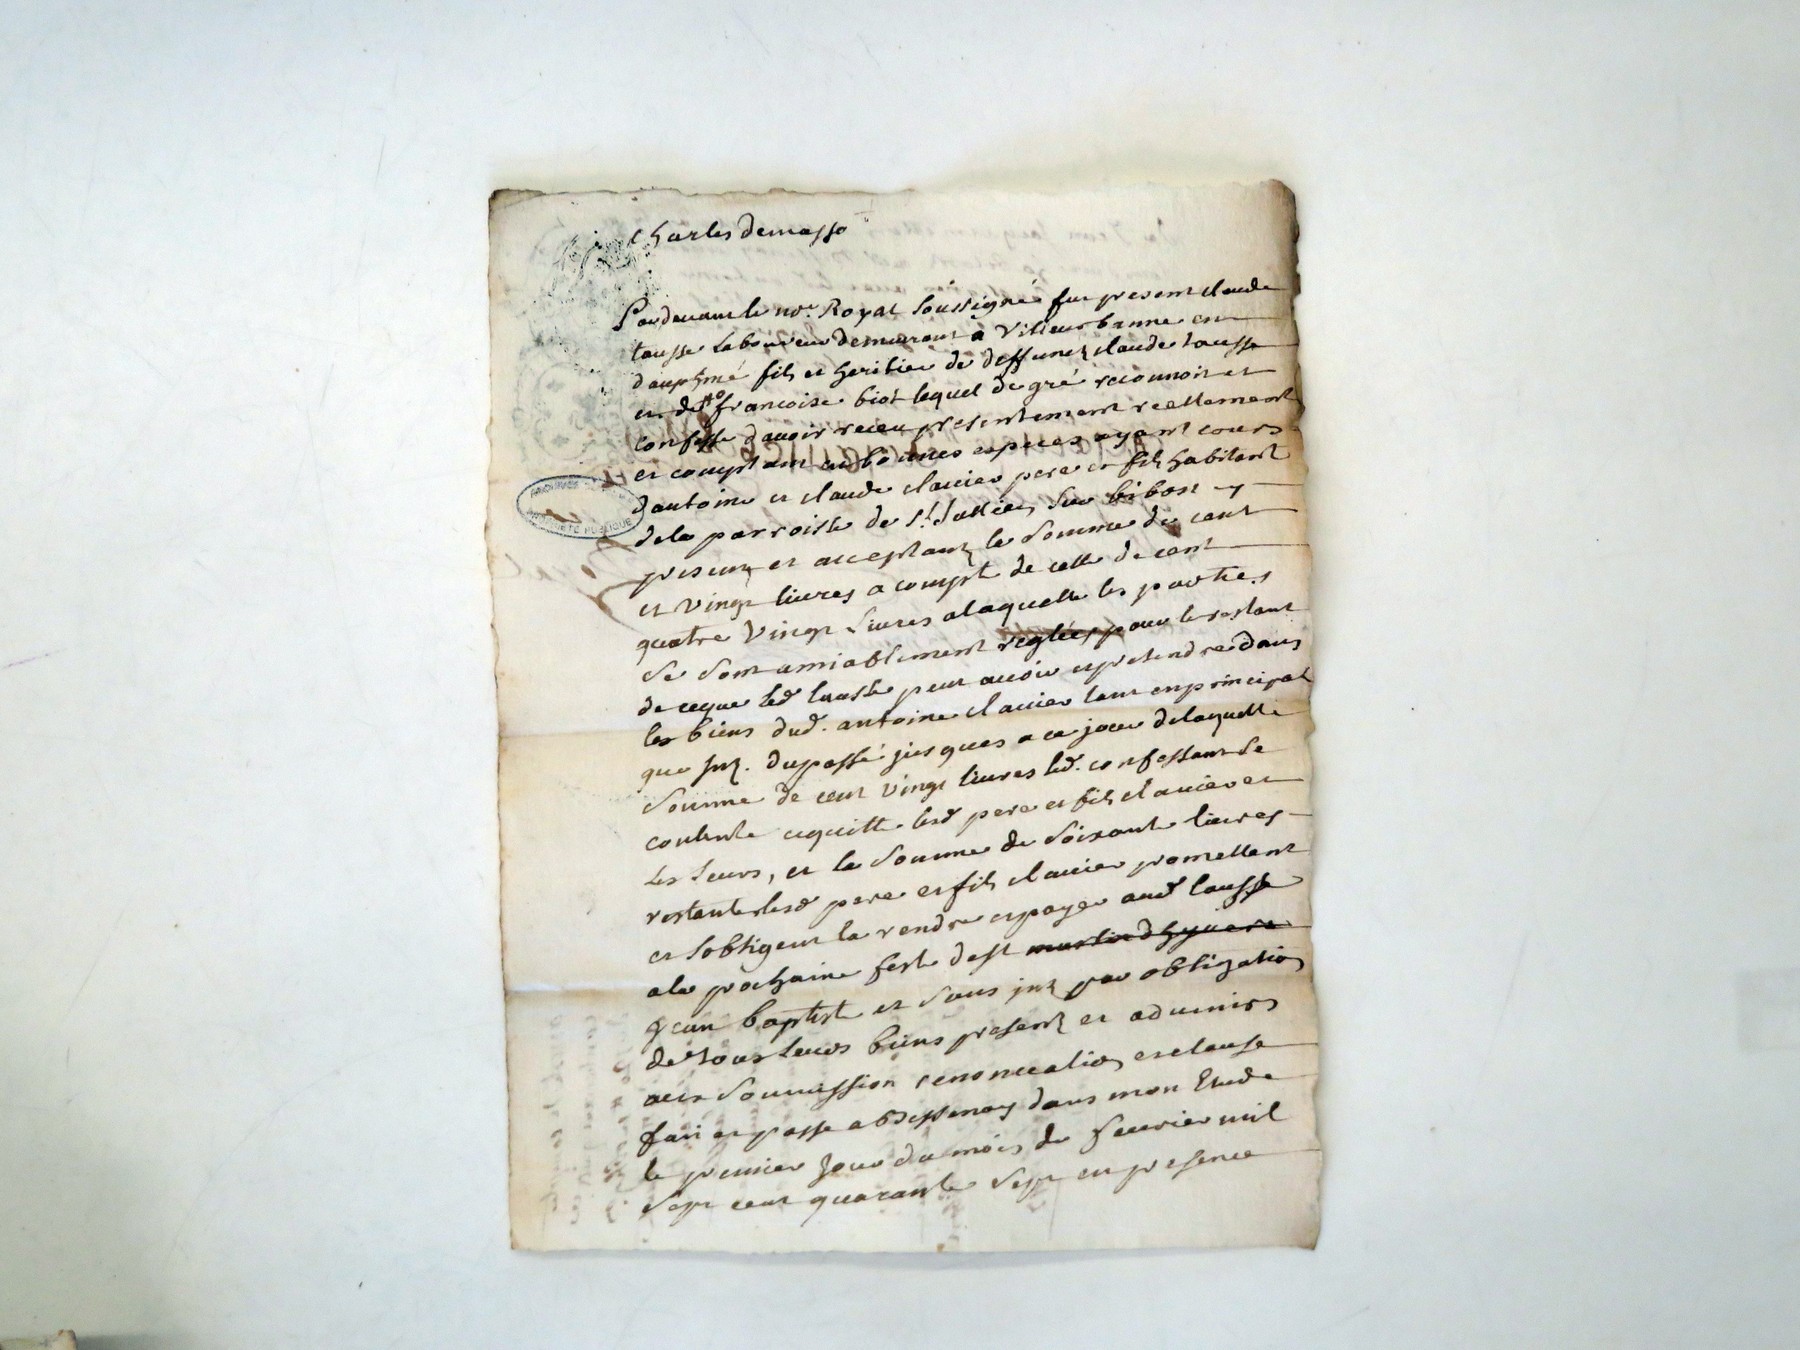 Charles Demasso
Pardevant le nore. Royal soussigné fut present claude
lausse Laboureur demeurant a Villeurbanne en
dauphiné fils et heritier de deffunct claude lausse
et de francoise biot lequel de gré reconnoit et
confesse davoir receu presentement reellement
et comptant en bonnes especes ayant cours
dantoine et claude clavier pere et fils habitant
dela parroisse de st. sur bibost y
presents et acceptants la somme de cent
et vingt livres a compte de celle de cent
quatre vingt Livres a laquelle les parties
se sont amiablement reglées pour le restant
de ceque led lausse peut avoir et pretendre dans
les biens dud. antoine clavier tant en principal
que . dupassé jusques a ce jour de laquelle
somme de cent vingt livres led. confessant se
contente et quitte lesd pere et fils clavier et
les leurs, et la somme de soixante livres
restante lesd pere et fils clavier promettent
et sobligent la rendre et payer aud lausse
ala prochaine feste dest martin dhyver
jean baptiste et sans par obligation
de tous leurs biens presents et advenirs
avec soumission renonciation et clause
fait et passe a bessenay dans mon Etude
le premier jour du mois de fevrier mil
sept cent quarante sept en presence
ARCHIVES
PUBLIQUE